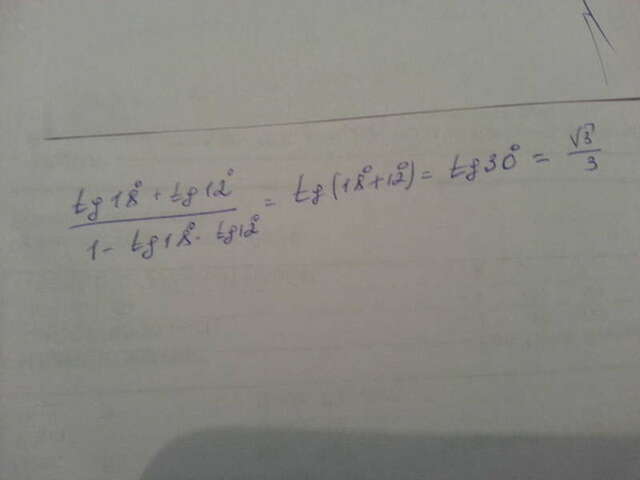 (tg18° + tg12°) / (1 - tg18° · tg12°) = tg(18° + 12°) = tg30° = √3/3